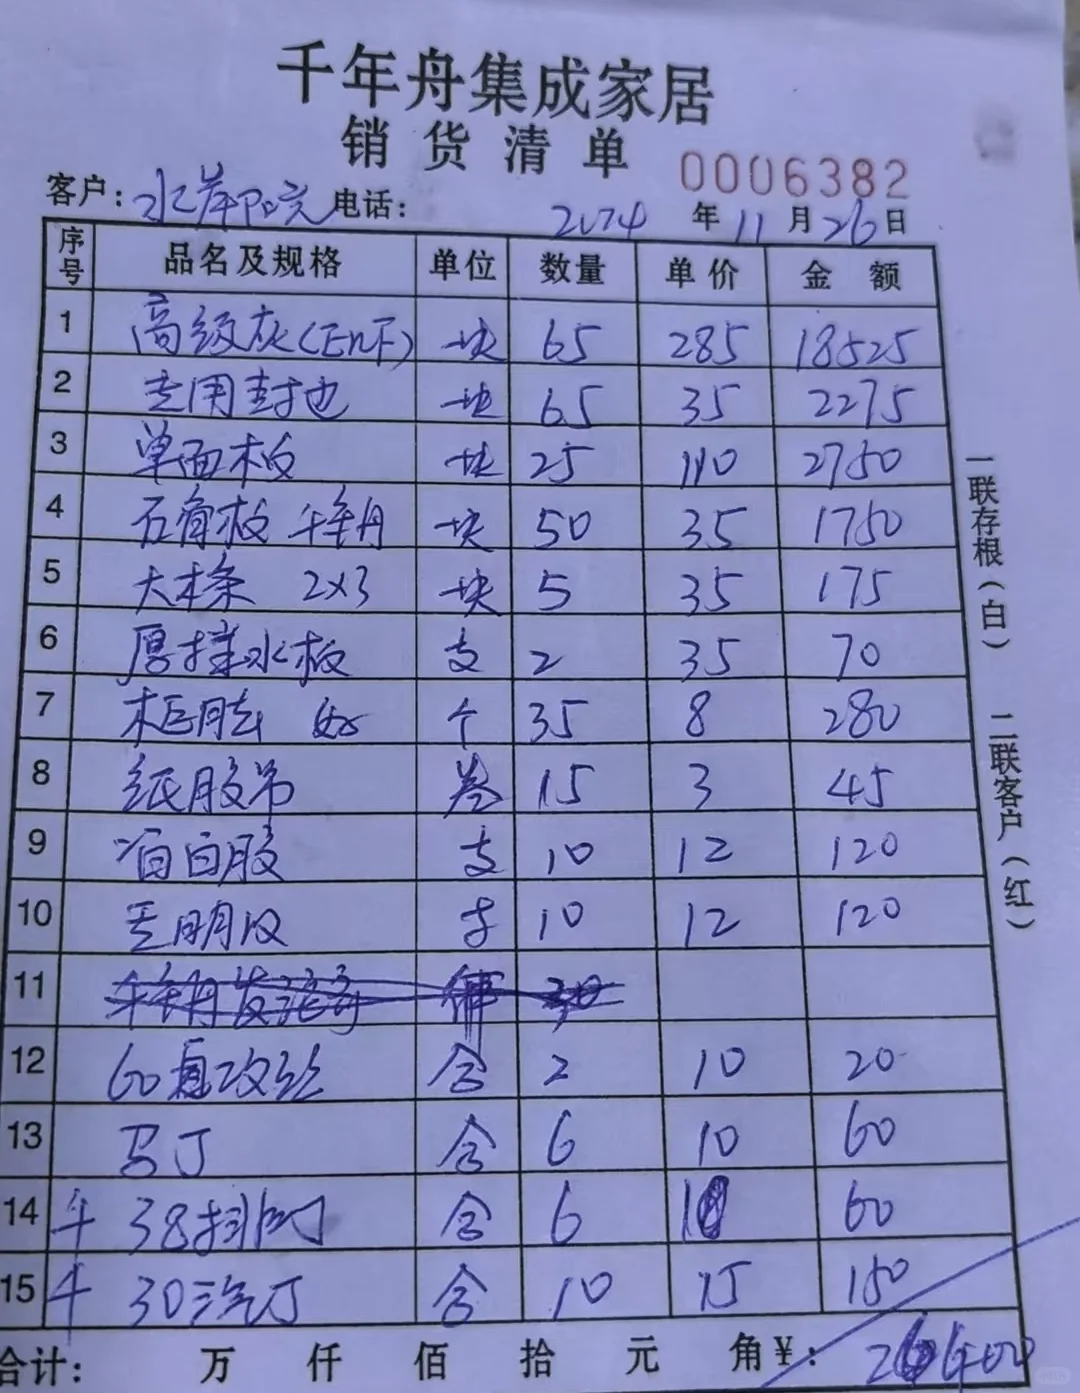 千年舟集成家居
销货清单
0006382
客户：水岸阳光 电话： 2024 年 11 月 26 日
序号 品名及规格 单位 数量 单价 金额
1 高级灰(ENF) 块 65 285 18525
2 专用封边 块 65 35 2275
3 单面板 块 25 110 2750
4 石膏板 千年舟 块 50 35 1750
5 大木条 2×3 块 5 35 175
6 支 2 35 70
7 个 35 8 280
8 纸胶带 卷 15 3 45
9 白胶 支 10 12 120
10 10 12 120
11
12 60自攻丝 合 2 10 20
13 马丁 合 6 10 60
14 38排 合 6 10 60
15 30 丁 合 10 15 150
合计： 万 仟 佰 拾 元 角 ¥： 26400
一联存根(白)
二联客户(红)